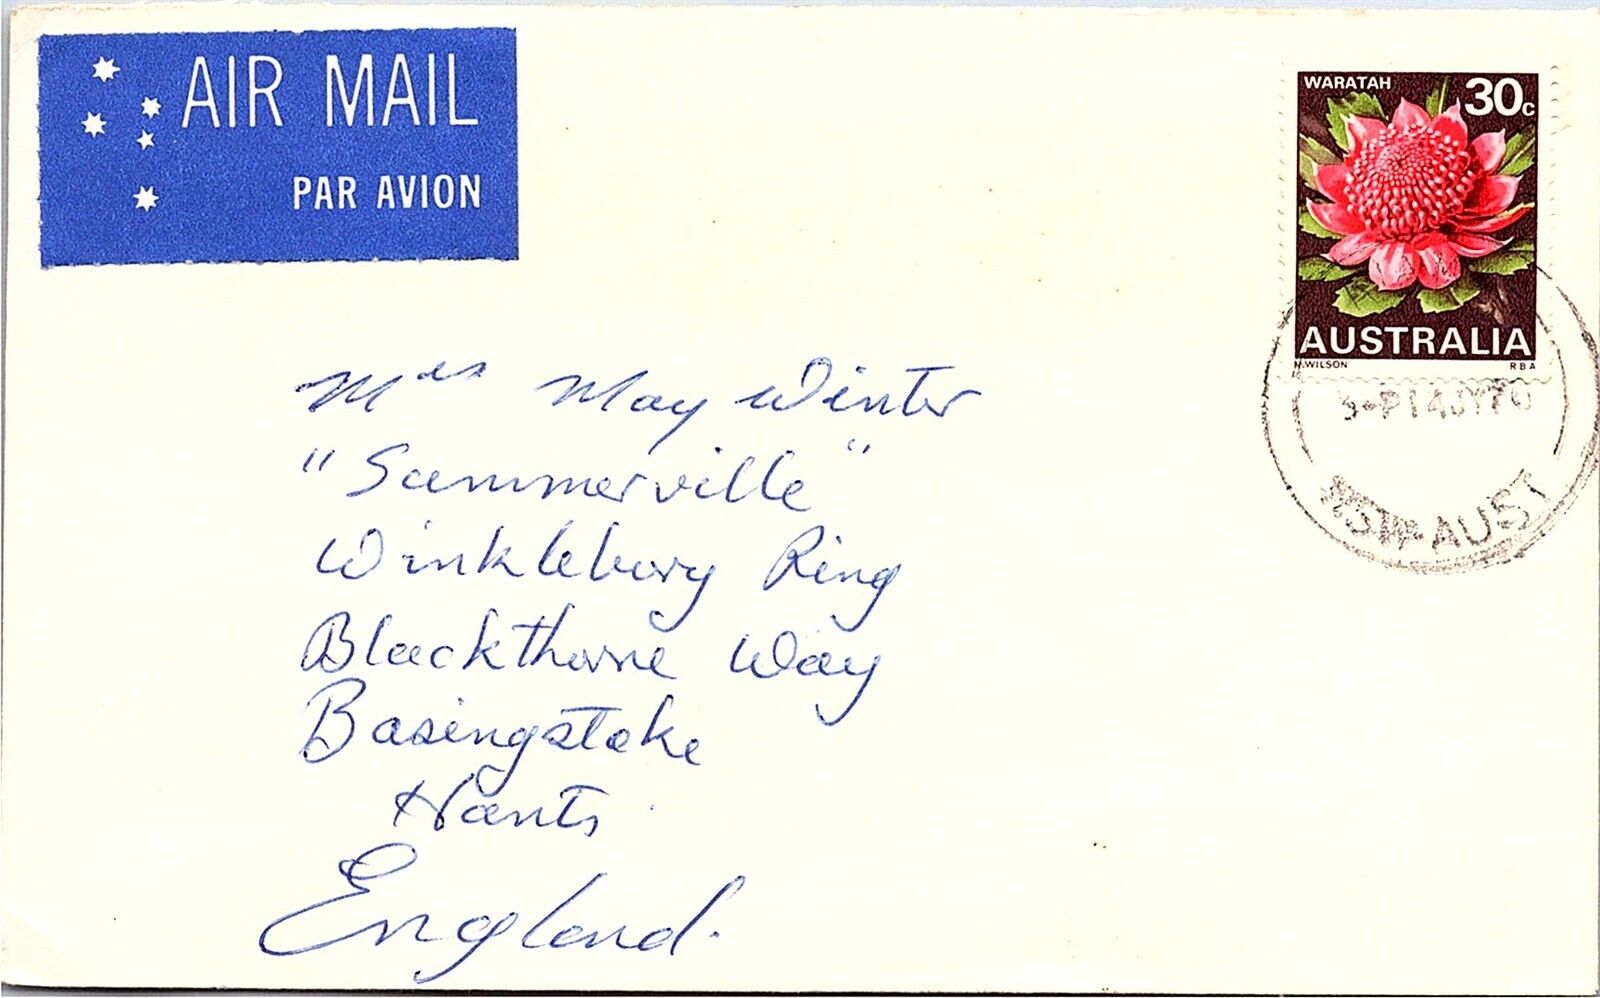 AIR MAIL
PAR AVION
WARATAH
30c
AUSTRALIA
M.WILSON RBA
3-P 14JY70
NSW-AUST
Mrs May Winter
"Summerville"
Winklebury Ring
Blackthorne Way
Basingstoke
Hants
England.